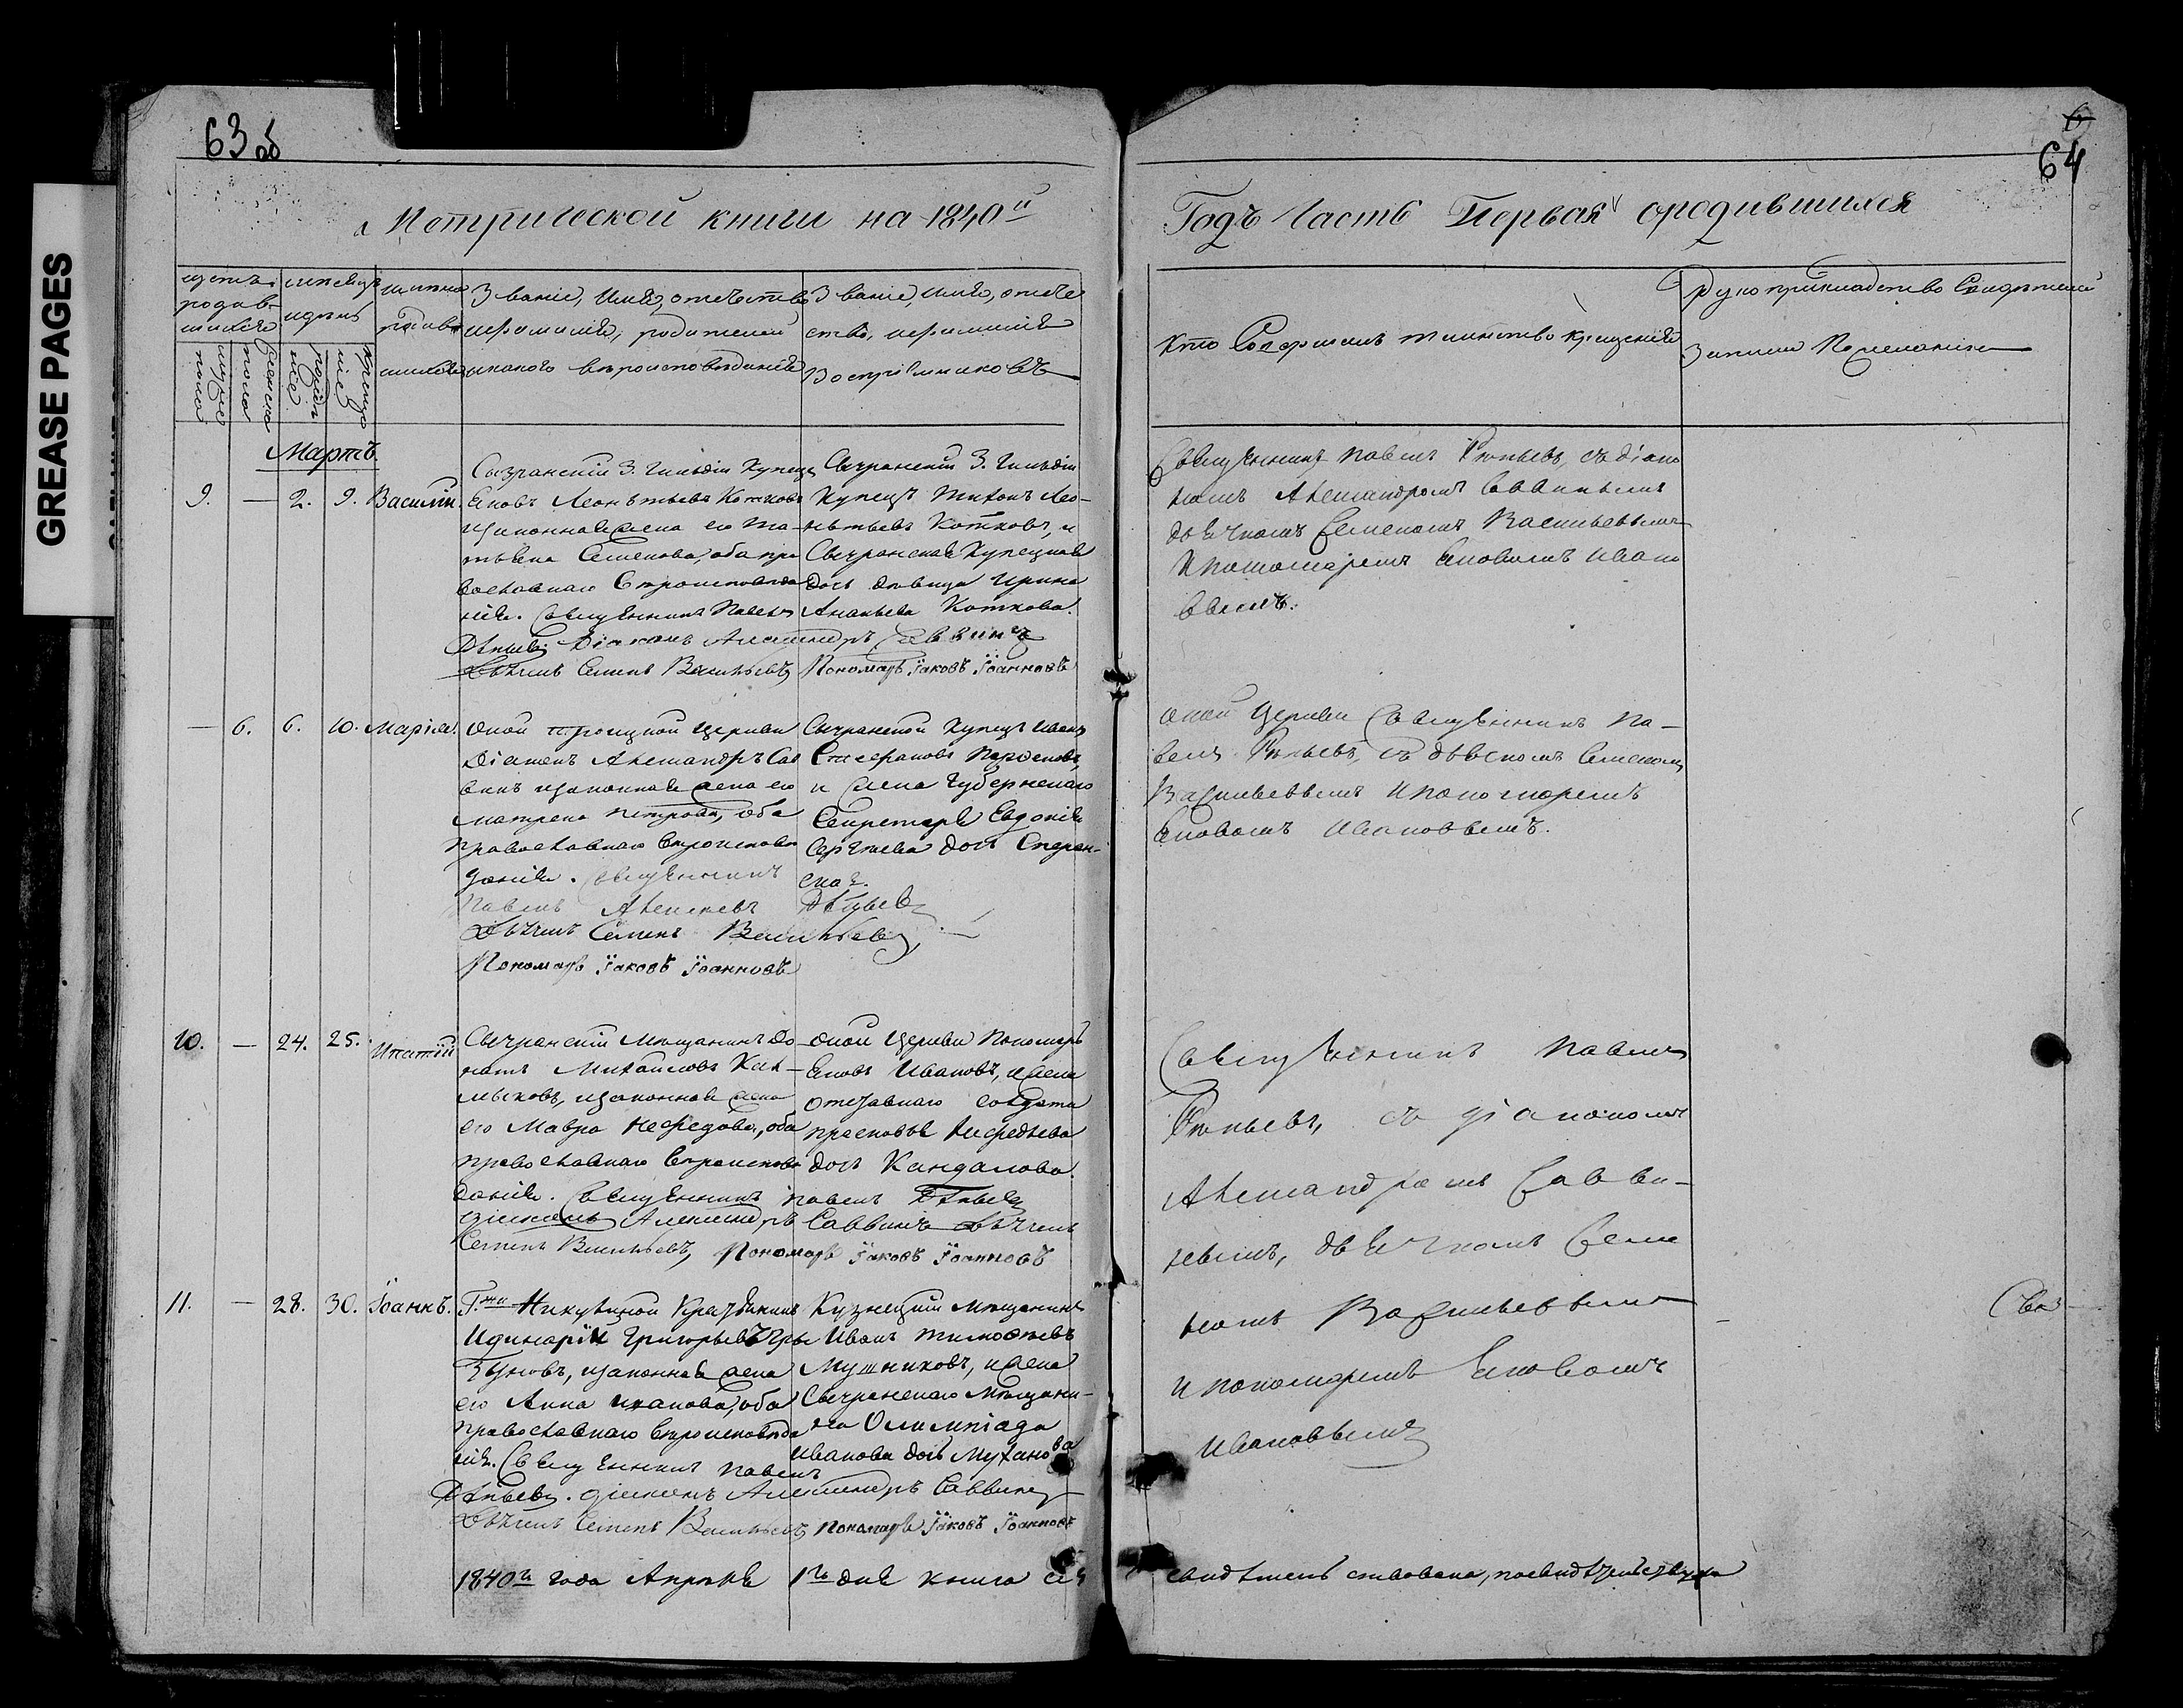 GREASE PAGES
63 об
6
64
Метрической книги на 1840й
Годъ Часть Первая о родившихся
щетъ
родив-
шихся
мужес
пола
женска
пола
месяцъ
и день
рожде
нія
креще
нія
имена
родив
шихся
Званіе, имя, отечество
и фамилія, родителей
и какого вѣроисповѣданія
Званіе, имя, отече
ство, и фамилія
Воспріемниковъ
Кто Совершалъ таинство крещенія
Рукоприкладство Свидѣтелей
Записи По желанію
Мартъ
9. — 2. 9. Василій.
Сызранскій 3. Гильдіи Купецъ
Яковъ Леонтьевъ Котковъ
и законная жена его Та-
тьяна Семенова, оба пра
вославнаго Вѣроисповѣда
нія. Священникъ Павелъ
Сызранскій 3. Гильдіи
Купецъ Тихонъ Лео-
нтьевъ Котковъ, и
Сызранская Купецкая
дочь девица Ирина
Ананьева Коткова.
Діаконъ Александръ Саввинъ
Дьячекъ Семенъ Васильевъ Пономарь Іаковъ Іоанновъ
Священникъ Павелъ съ діако
номъ Александромъ Саввинымъ
дьячкомъ Семеномъ Васильевымъ
и пономаремъ Яковомъ Ивано
вымъ.
— 6. 6. 10. Марія.
Оной Троицкой Церкви
Діаконъ Александръ Сав
винъ и законная жена его
Матрена Петрова, оба
Православнаго Вѣроисповѣ
данія. Священникъ
Павелъ Алексеевъ
Дьячекъ Семенъ Васильевъ,
Пономарь Іаковъ Іоанновъ
Сызранской Купецъ Иванъ
Стефановъ
и жена Губернскаго
Секретаря Евдокія
Сергѣева дочь Сперан-
ская.
оной Церкви Священникъ Па-
велъ съ дьячкомъ Семеномъ
Васильевымъ и пономаремъ
Яковомъ Ивановымъ.
10. — 24. 25. Ипатій
Сызранскій Мещанинъ До-
натъ Михайловъ Кал-
мыковъ, и законная жена
его Мавра Нефедова, оба
православнаго Вѣроисповѣ
данія. Священникъ Павелъ
діаконъ Александръ Саввинъ Дьячекъ
Семенъ Васильевъ, Пономарь Іаковъ Іоанновъ
оной Церкви Пономарь
Яковъ Ивановъ, и жена
отставнаго солдата
Прасковья Нефедьева
дочь Кандалова.
Священникъ Павелъ
съ діакономъ
Александромъ Савви-
новымъ, дьячкомъ Семе
номъ Васильевымъ
и пономаремъ Яковомъ
Ивановымъ
11. — 28. 30. Іоаннъ.
Г-жи
Григорьевъ
и законная жена
его Анна Иванова, оба
православнаго Вѣроисповѣда
нія. Священникъ Павелъ
діаконъ Александръ Саввинъ
Дьячекъ Семенъ Васильевъ Пономарь Іаковъ Іоанновъ
Кузнецкій Мещанинъ
Иванъ Тимофеевъ
Мушниковъ, и жена
Сызранскаго Мещани-
на Олимпіада
Иванова дочь Муханова
1840го года Апреля 1го дня книга сія
свидѣтельствована